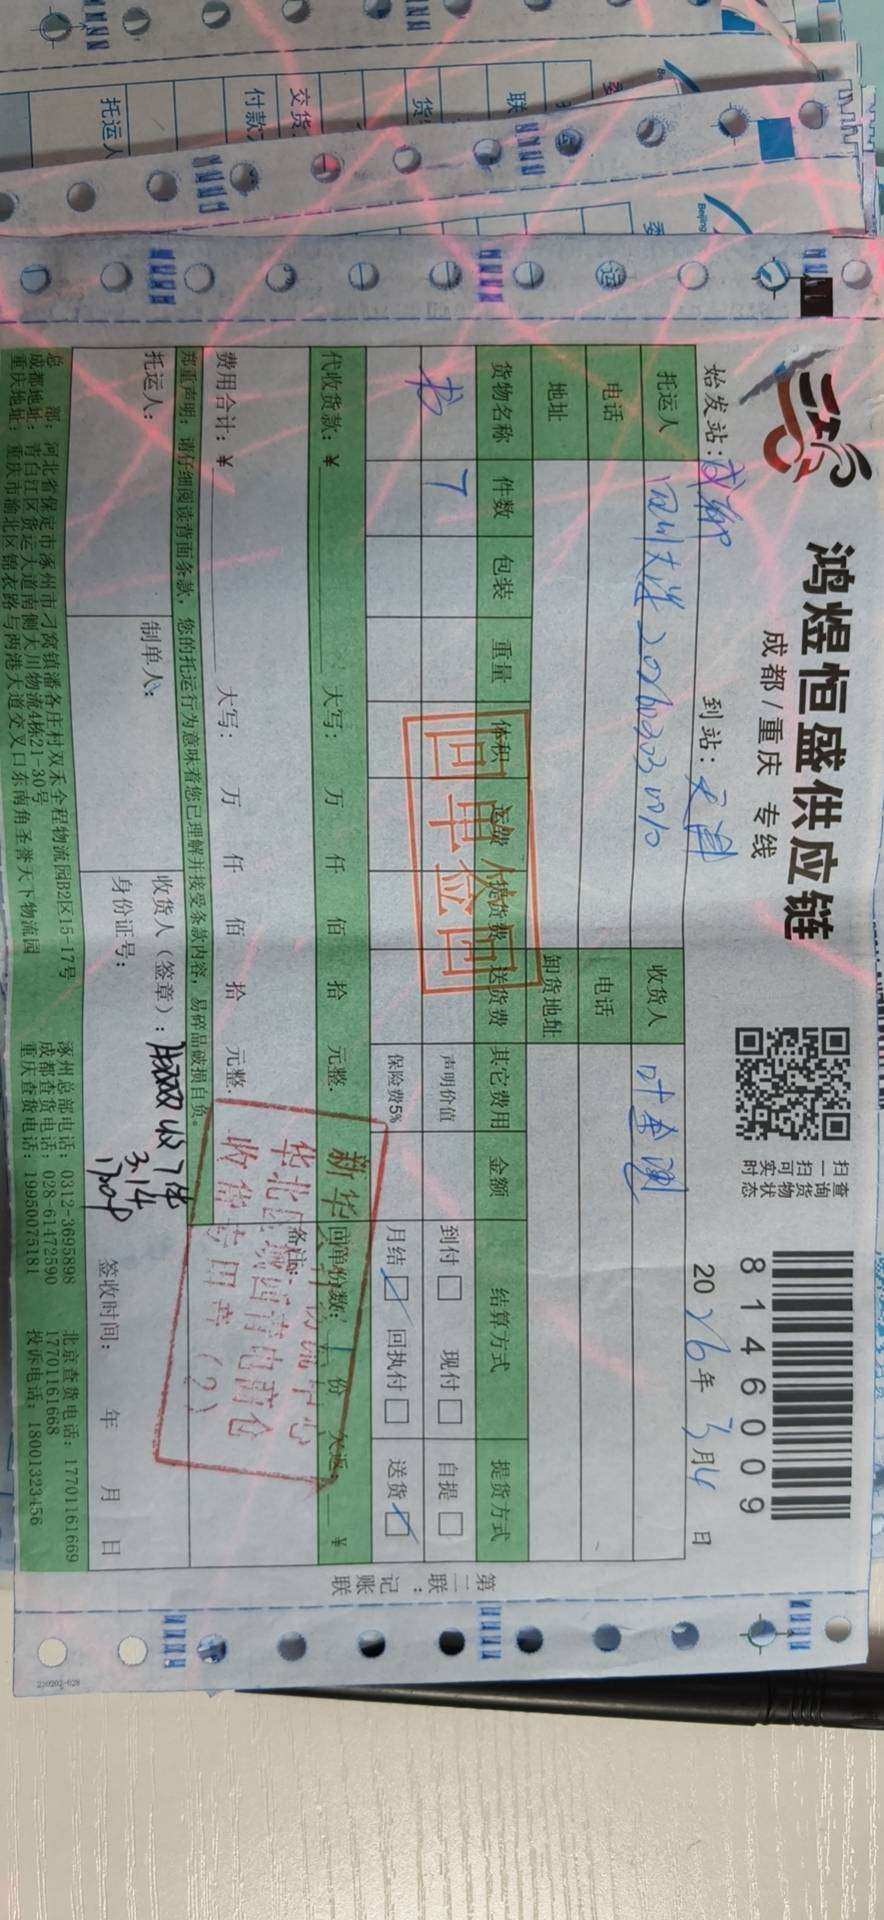 鸿煜恒盛供应链
成都/重庆 专线
查询货物实时状态
扫一扫可
8146009
始发站:成都 到站:天津 2026年3月4日
托运人 四川文选 收货人 叶春
电话 电话
地址 卸货地址
货物名称 件数 包装 重量 体积 运费 提货费 送货费 其它费用 金额 结算方式 提货方式
书 7 声明价值 到付 □ 现付 □ 自提 □
保险费5% 月结 ☑ 回执付 □ 送货 ☑
回单签回
代收货款:¥ 大写: 万 仟 佰 拾 元整. 回单份数: 1 份 欠返: ¥
费用合计:¥ 大写: 万 仟 佰 拾 元整. 备注:
郑重声明:请仔细阅读背面条款,您的托运行为意味着您已理解并接受条款内容,易碎品破损自负。
新华
收货专用章(2)
托运人: 制单人: 收货人(签章): 收7件
3.14
身份证号: 签收时间: 年 月 日
总 部:河北省保定市涿州市刁窝镇潘各庄村双禾全程物流园B2区15-17号 涿州总部电话:0312-3695898 北京查货电话:17701161669
成都地址:青白江区货运大道南侧天川物流4栋21-30号 成都查货电话:028-61472590 17701161668
重庆地址:重庆市渝北区锦衣路与两港大道交叉口东南角圣誉天下物流园 重庆查货电话:19950075181 投诉电话:18001323456
第二联:记账联
230202-028
托运人
付款
交货
货
联
Beijing
Beijing